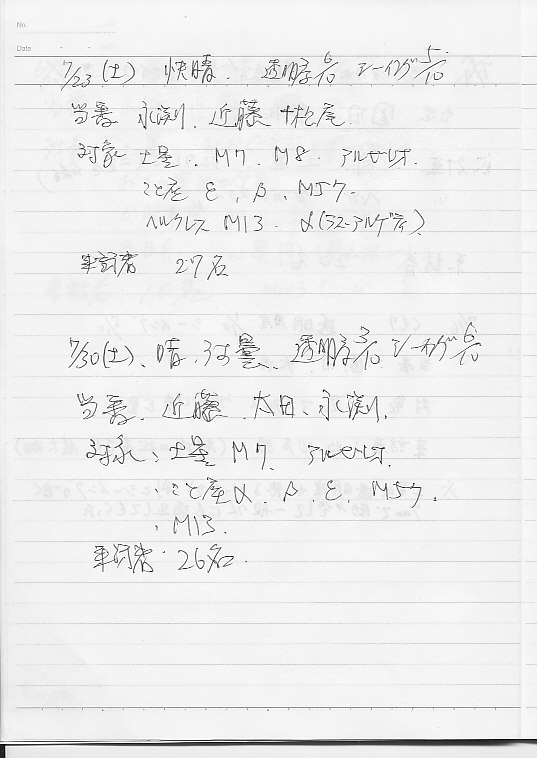 No.
Date
7/23(土) 快晴. 透明度6/10 シーイング5/10
当番 永渕, 近藤 十松尾.
対象 土星. M7. M8. アルビレオ.
こと座 ε, β, M57.
ヘルクレス M13. α(ラス・アルゲティ)
来訪者 27名
7/30(土), 晴, 透明度3/10 シーイング6/10
当番. 近藤. 太田, 永渕.
対象, 土星 M7. アルビレオ.
, こと座α, β, ε, M57.
, M13.
来訪者. 26名.